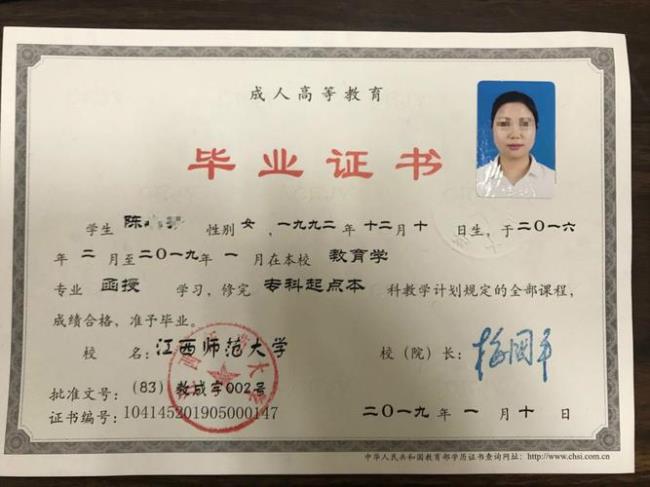 成人高等教育
毕业证书
学生 陈 性别 女 ,一九九二 年 十二 月 十 日生，于 二〇一六
年 二 月至 二〇一九 年 一 月在本校 教育学
专业 函授 学习，修完 专科起点本 科教学计划规定的全部课程，
成绩合格，准予毕业。
校 名：江西师范大学 校（院）长：
批准文号：（83）教成字002号
证书编号：104145201905000147 二〇一九 年 一 月 十 日
中华人民共和国教育部学历证书查询网址：http://www.chsi.com.cn